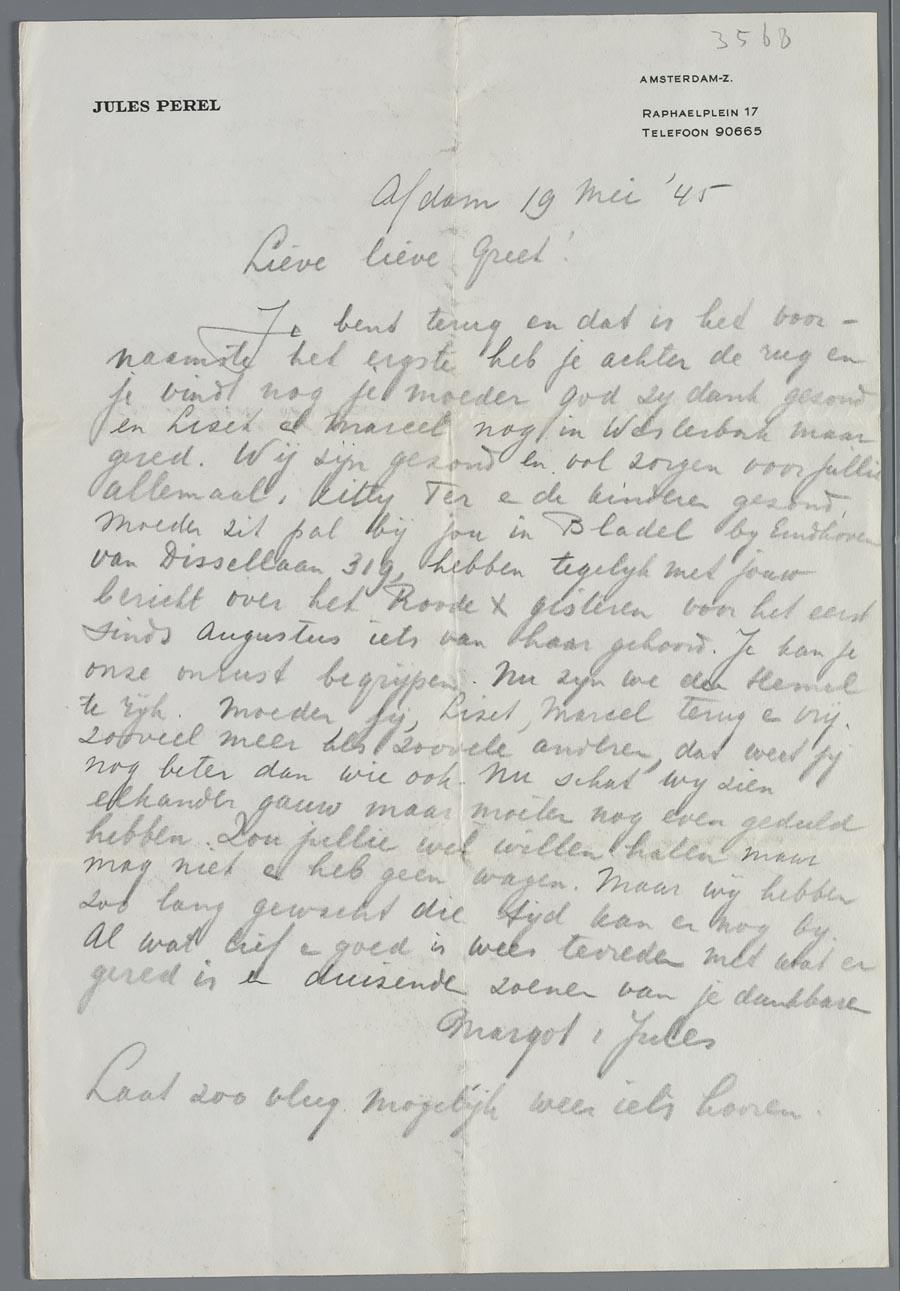 3568
JULES PEREL
AMSTERDAM-Z.
RAPHAELPLEIN 17
TELEFOON 90665
A/dam 19 Mei '45
Lieve lieve Greet!
Je bent terug en dat is het voor-
naamste het ergste heb je achter de rug en
je vindt nog je moeder God zy dank gezond
en Liset e Marcel nog in Westerbork maar
gered. Wij zijn gezond en vol zorgen voor jullie
allemaal, Kitty Ter e de kinderen gezond,
Moeder zit pal bij jou in Bladel by Eindhoven
van Dissellaan 319, hebben tegelyk met jouw
bericht over het Roode X gisteren voor het eerst
sinds Augustus iets van haar gehoord. Je kan je
onze onrust begrijpen. Nu zyn we den Hemel
te ryk. Moeder, jij, Liset, Marcel terug e vrij.
zooveel meer als zoovele anderen, dat weet jij
nog beter dan wie ook. Nu schat wy zien
elkander gauw maar moeten nog even geduld
hebben. Zou jullie wel willen halen maar
mag niet e heb geen wagen. Maar wij hebben
zoo lang gewacht die tijd kan er nog by.
Al wat lief e goed is wees tevreden met wat er
gered is e duizende zoenen van je dankbare
Margot, Jules
Laat zoo vlug mogelijk weer iets hooren.